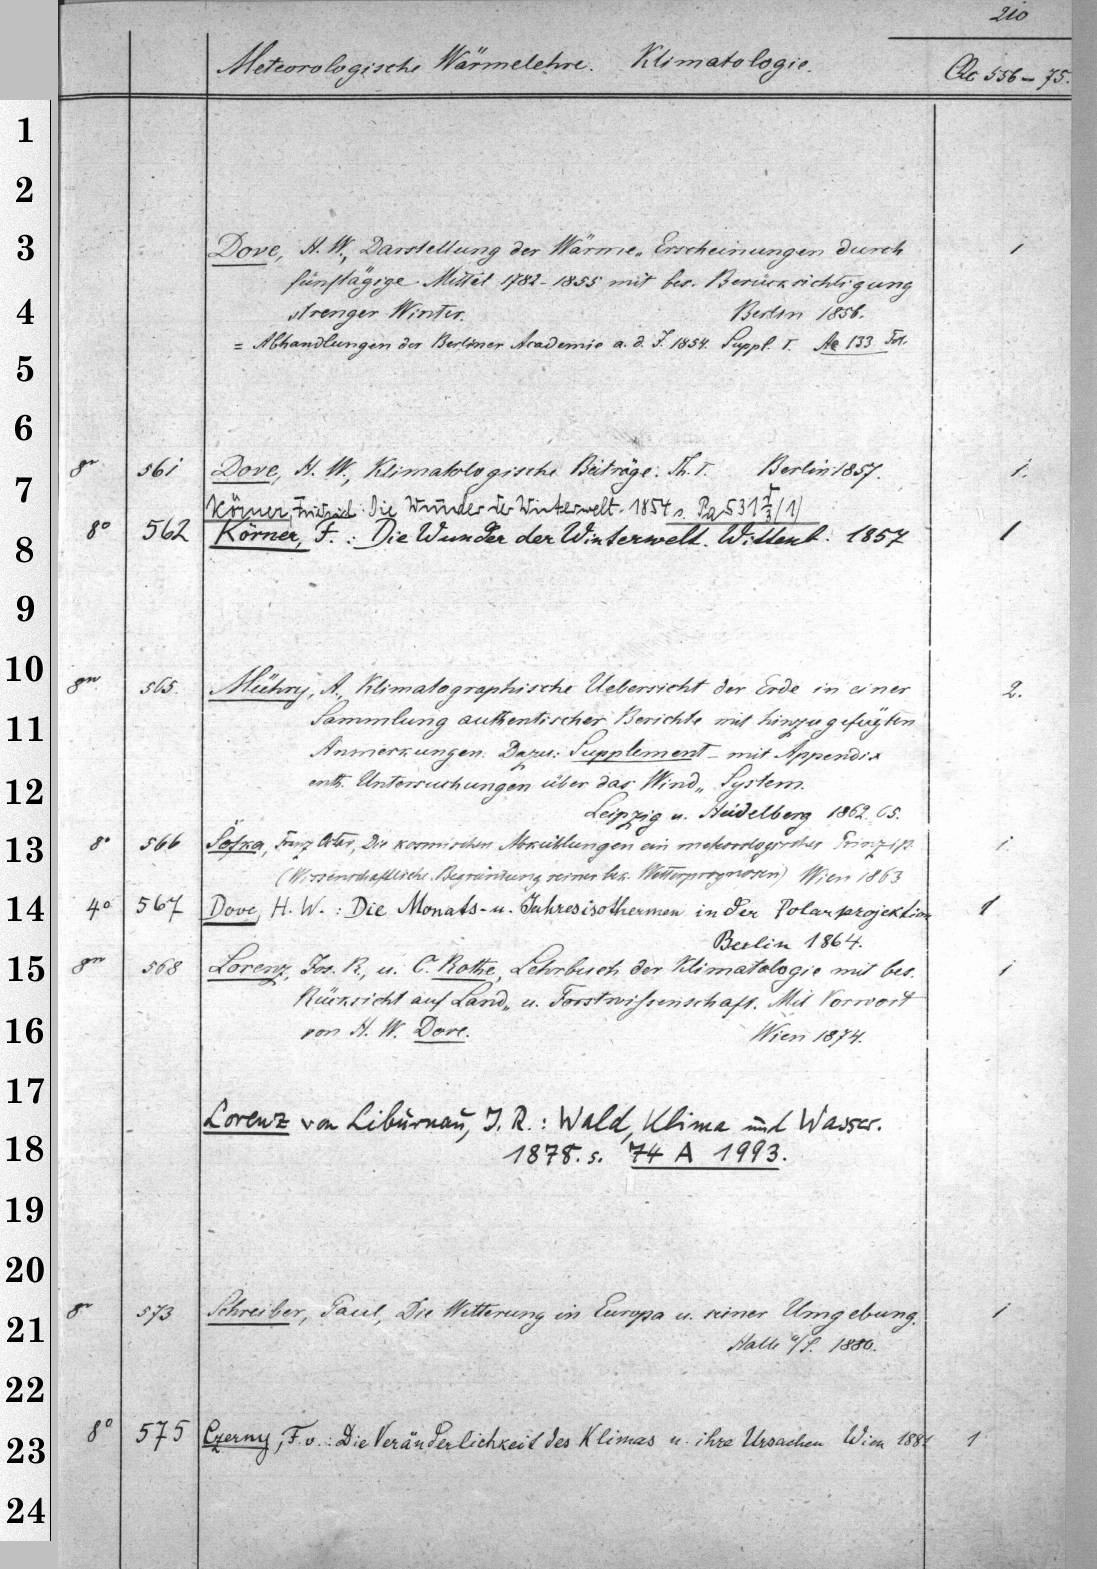 210
Meteorologische Wärmelehre. Klimatologie. 556-75.
Dove, H. W., Darstellung der Wärme„ Erscheinungen durch 1
fünftägige Mittel 1782-1855 mit bes. Berücksichtigung
strenger Winter. Berlin 1856.
= Abhandlungen der Berliner Academie a. d. J. 1854. Suppl. I. Ac 133 Fol.
8° 561 Dove, H. W., Klimatologische Beiträge. Th. I. Berlin 1857. 1.
Körner, Friedrich: Die Wunder der Winterwelt. 1854 s.
8° 562 Körner, F.: Die Wunder der Winterwelt. Wittenb. 1857 1
8° 565. Mühry, A., Klimatographische Uebersicht der Erde in einer 2.
Sammlung authentischer Berichte mit hinzugefügten
Anmerkungen. Dazu: Supplement mit Appendix
enth. Untersuchungen über das Wind„ System.
Leipzig u. Heidelberg 1862. 65.
8° 566 Franz Die kosmischen Abkühlungen ein meteorologisches Prinzip. 1
(Wissenschaftliche Begründung seiner bek. Wetterprognosen) Wien 1863
4° 567 Dove, H. W.: Die Monats- u. Jahresisothermen in der Polarprojektion 1
Berlin 1864.
8° 568 Lorenz, Jos. R., u. C. Rothe, Lehrbuch der Klimatologie mit bes. 1
Rücksicht auf Land„ u. Forstwissenschaft. Mit Vorwort
von H. W. Dove. Wien 1874.
Lorenz von Liburnau, J. R.: Wald, Klima und Wasser.
1878. s. 74 A 1993.
8° 573 Schreiber, Paul, Die Witterung in Europa u. seiner Umgebung. 1
Halle a/S. 1880.
8° 575 Czerny, F. v.: Die Veränderlichkeit des Klimas u. ihre Ursachen Wien 1881 1
1
2
3
4
5
6
7
8
9
10
11
12
13
14
15
16
17
18
19
20
21
22
23
24